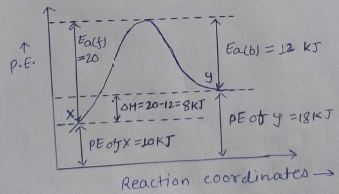 Ea(f)
=20
↑
P.E.
Ea(b) = 12 KJ
y
x
ΔH=20-12=8KJ
PE of y =18KJ
PE of X =10KJ
Reaction coordinates →